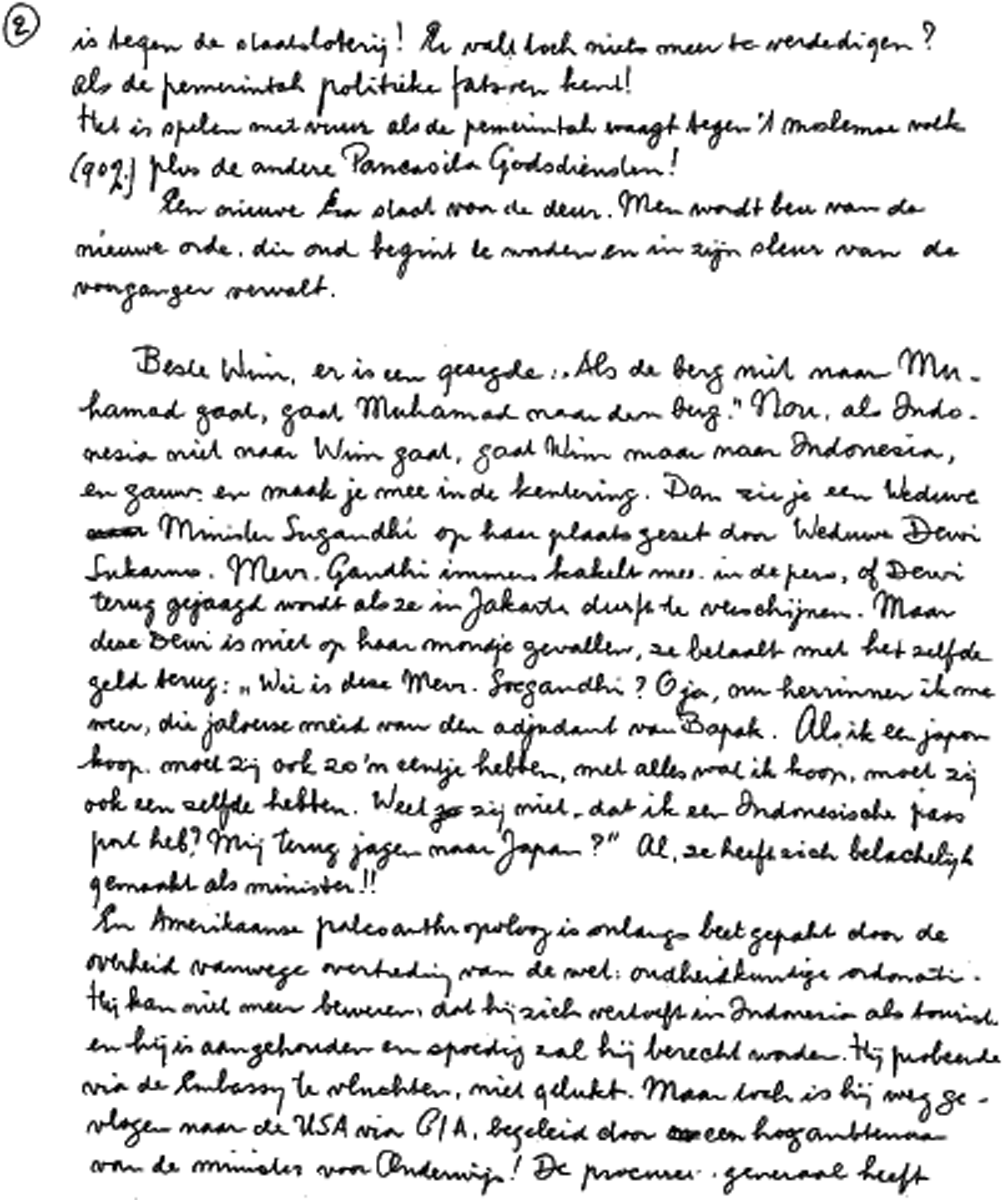 2
is tegen de staatsloterij! Er valt toch niets meer te verdedigen?
als de pemerintah politieke fatsoen kent!
Het is spelen met vuur als de pemerintah waagt tegen 't moslemse volk
(90%) plus de andere Pancasila Godsdiensten!
Een nieuwe Era staat voor de deur. Men wordt beu van de
nieuwe orde. die oud begint te worden en in zijn sleur van de
voorganger vervalt.
Beste Wim, er is een gesegde: „Als de berg niet naar Mu-
hamad gaat, gaat Muhamad naar den berg." Nou, als Indo-
nesia niet naar Wim gaat, gaat Wim maar naar Indonesia,
en gauw. en maak je mee in de kentering. Dan zie je een Weduwe
Minister Sugandhi op haar plaats geset door Weduwe Dewi
Sukarno. Mevr. Gandhi immers kakelt mee. in de pers, of Dewi
terug gejaagd wordt als ze in Jakarta durft te verschijnen. Maar
dese Dewi is niet op haar mondje gevallen, ze betaalt met het zelfde
geld terug: „Wie is dese Mevr. Soegandhi? O ja, nu herrinner ik me
weer, die jaloerse meid van den adjudant van Bapak. Als ik een japon
koop. moet zij ook zo'n eentje hebben, met alles wat ik koop, moet zij
ook een zelfde hebben. Weet zij niet, dat ik een Indonesische pass
port heb? Mij terug jagen naar Japan?" Al, ze heeft zich belachelijk
gemaakt als minister!!
En Amerikaanse paleoanthropoloog is onlangs beet gepakt door de
overheid vanwege overtreding van de wet: oudheidkundige ordonati.
Hij kan niet meer beweren, dat hij zich vertoeft in Indonesia als tourist.
en hij is aangehouden en spoedig zal hij berecht worden. Hij probeerde
via de Embassy te vluchten, niet gelukt. Maar toch is hij weg ge-
vlogen naar de USA via CIA, begeleid door een hog ambtenaar
van de minister voor Onderwijs! De procureur generaal heeft